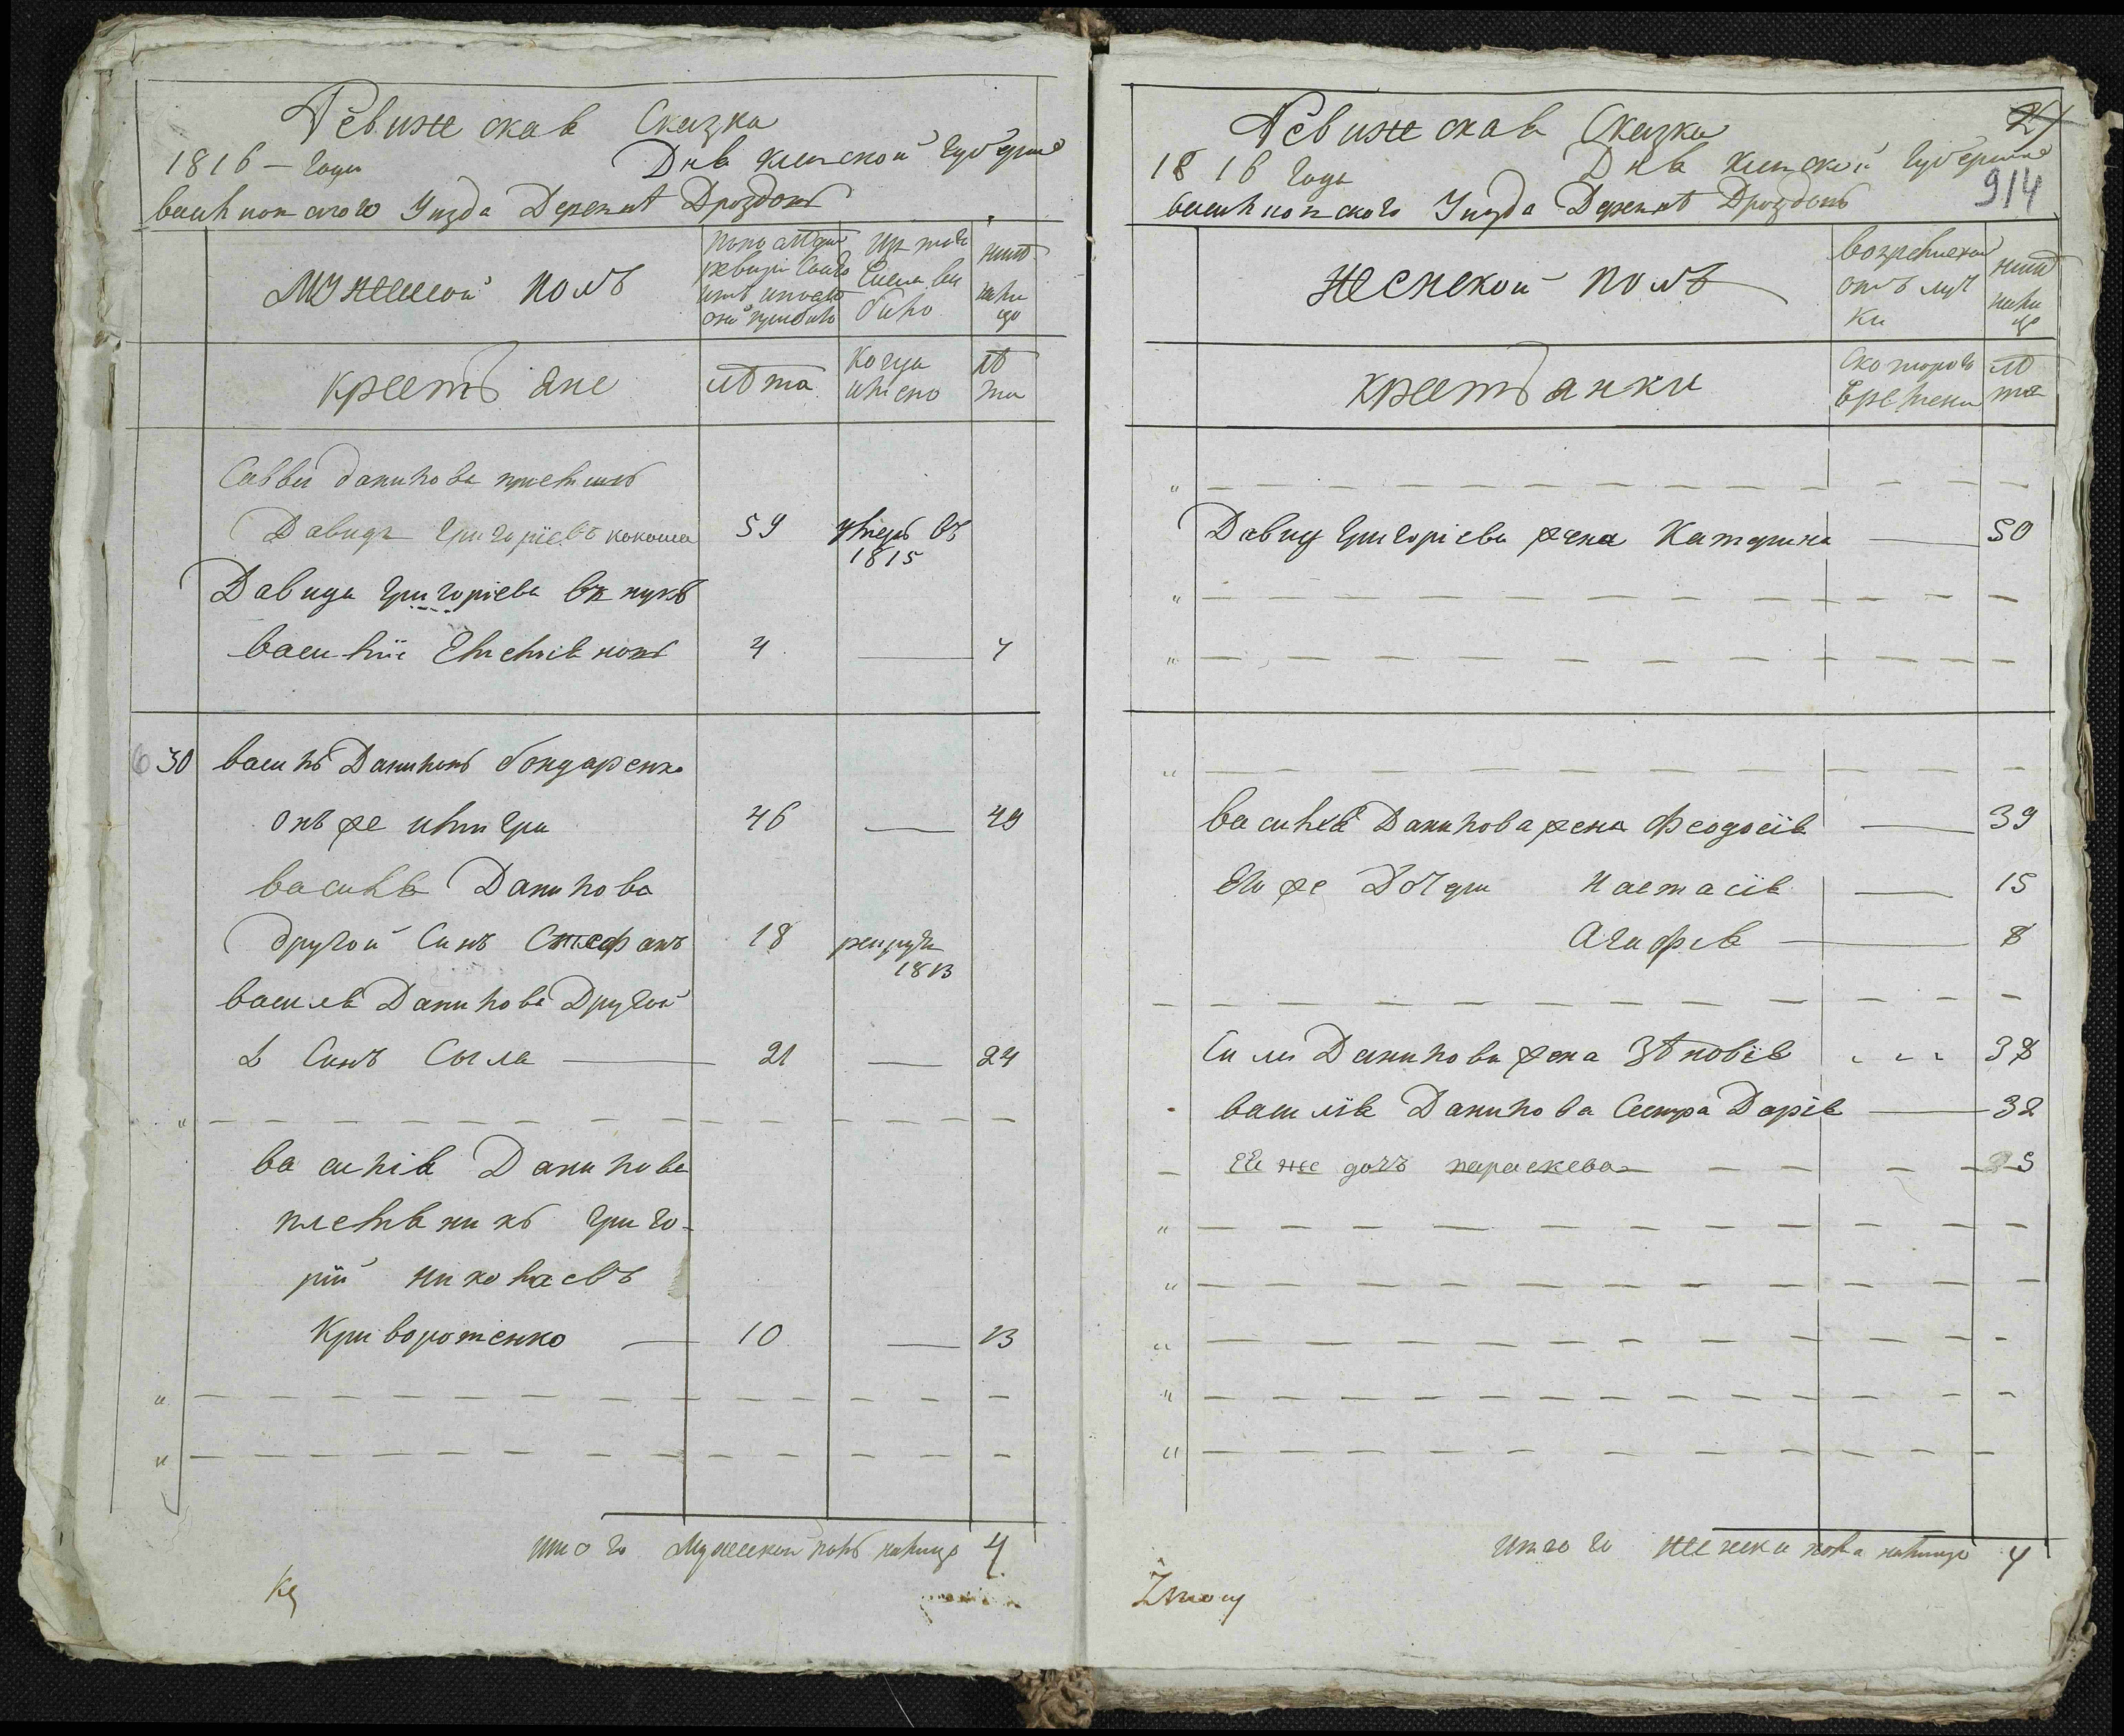 Ревижская Сказка
1816 – года Дня Киевской Губерніи
васильковского Уизда Деревнѣ Дроздовъ
Мужеской полъ
по последней ревизіи состояло и после оной прибило
Изъ того числа вибыло
нинѣ на лице
крестьяне
лѣта
Когда имено
лѣта
Саввы данилова приемишъ
Давидъ Григоріевъ кокоша 59 умеръ въ 1815
Давида Григоріева внукъ
василій 4 — 7
30 василь Даниловъ бондаренко
онъ же 46 — 49
василя Данилова
другой Синъ Стефанъ 18 рекрутъ 1813
василя Данилова Другой
Синъ Сыла — 21 — 24
василія Данилова
племяникъ Григо-
рій Николаевъ
Криворотенко — 10 — 13
итого Мужеской полъ налице 4
Ревижская Сказка
1816 года Дня Киевской Губерніи
васильковского Уизда Деревнѣ Дроздовъ
27
914
Женской полъ
во временой отлучки
нинѣ на лице
крестьянки
Скоторого времени
лѣта
Давида Григоріева жена Катерина — 50
василія Данилова жена Феодосія — 39
Его же Дочери Настасія — 15
Агафія — 8
Сили Данилова жена Зѣновія 38
василія Данилова Сестра Дарія — 32
Ей же дочъ параскева
итого женска пола налице 4